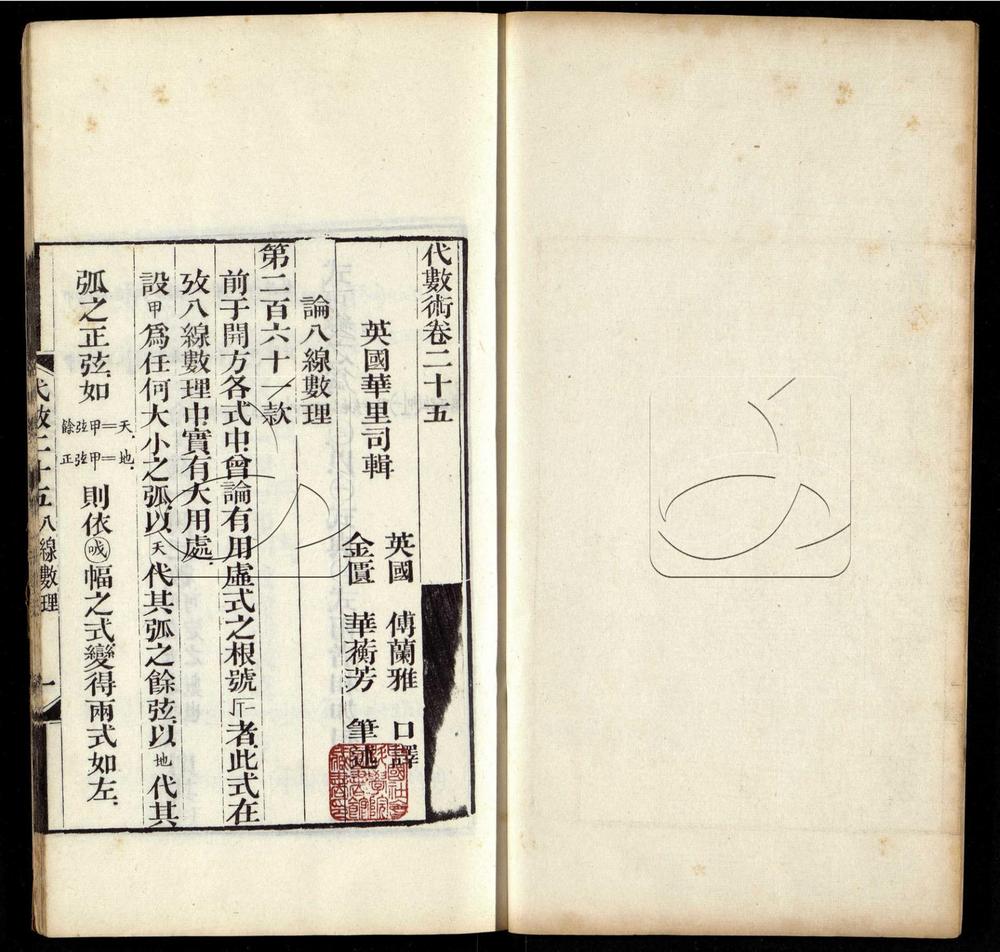 代數術卷二十五
英國華里司輯
英國　傅蘭雅　口譯
金匱　華蘅芳　筆述
論八線數理
第二百六十一款
前于開方各式中曾論有用虛式之根號者此式在
攷八線數理中實有大用處
設甲爲任何大小之弧以天代其弧之餘弦以地代其
弧之正弦如
餘弦甲＝天
正弦甲＝地
則依㘎幅之式變得兩式如左
代數二十五　八線數理　一